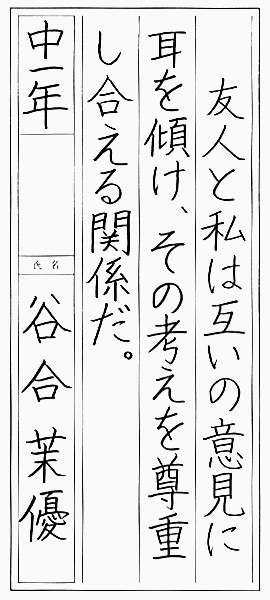 友人と私は互いの意見に
耳を傾け、その考えを尊重
し合える関係だ。
中一年
氏名
谷合茉優